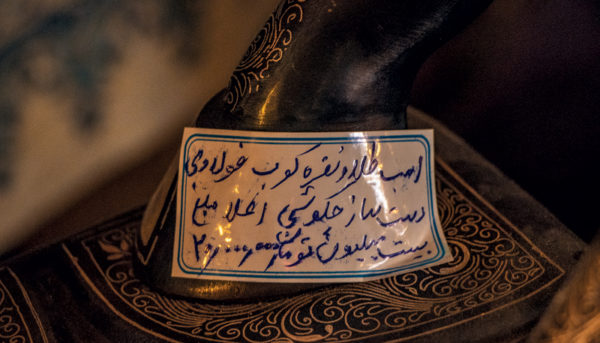 اسب طلا و نقره کوب فولادی
دست ساز حکوشی اطلا مبلغ
بیست میلیون تومان ۲۰,۰۰۰,۰۰۰